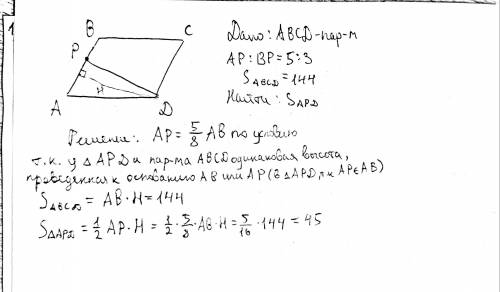 1
B
C
P
H
A
D
Дано: ABCD-пар-м
AP:BP=5:3
S ABCD = 144
Найти: S APD
Решение: AP = 5/8 AB по условию
т.к. у △APD и пар-ма ABCD одинаковая высота,
проведенная к основанию AB или AP (в △APD, т.к AP∈AB)
S ABCD = AB·H = 144
S△APD = 1/2 AP·H = 1/2 · 5/8 · AB·H = 5/16 · 144 = 45